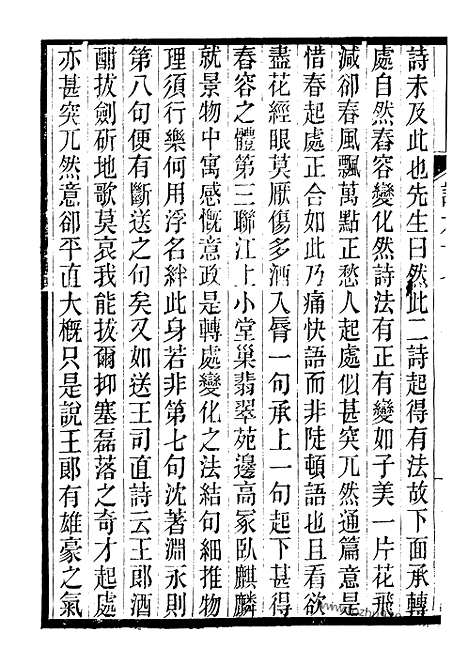 詩未及此也先生曰然此二詩起得有法故下面承轉
處自然舂容變化然詩法有正有變如子美一片花飛
減卻春風飄萬點正愁人起處似甚突兀然通篇意是
惜春起處正合如此乃痛快語而非陡頓語也且看欲
盡花經眼莫厭傷多酒入脣一句承上一句起下甚得
舂容之體第三聯江上小堂巢翡翠苑邊高冢臥麒麟
就景物中寓感慨意政是轉處變化之法結句細推物
理須行樂何用浮名絆此身若非第七句沈著淵永則
第八句便有斷送之句矣又如送王司直詩云王郎酒
酣拔劍斫地歌莫哀我能拔爾抑塞磊落之奇才起處
亦甚突兀然意卻平直大概只是說王郎有雄豪之氣